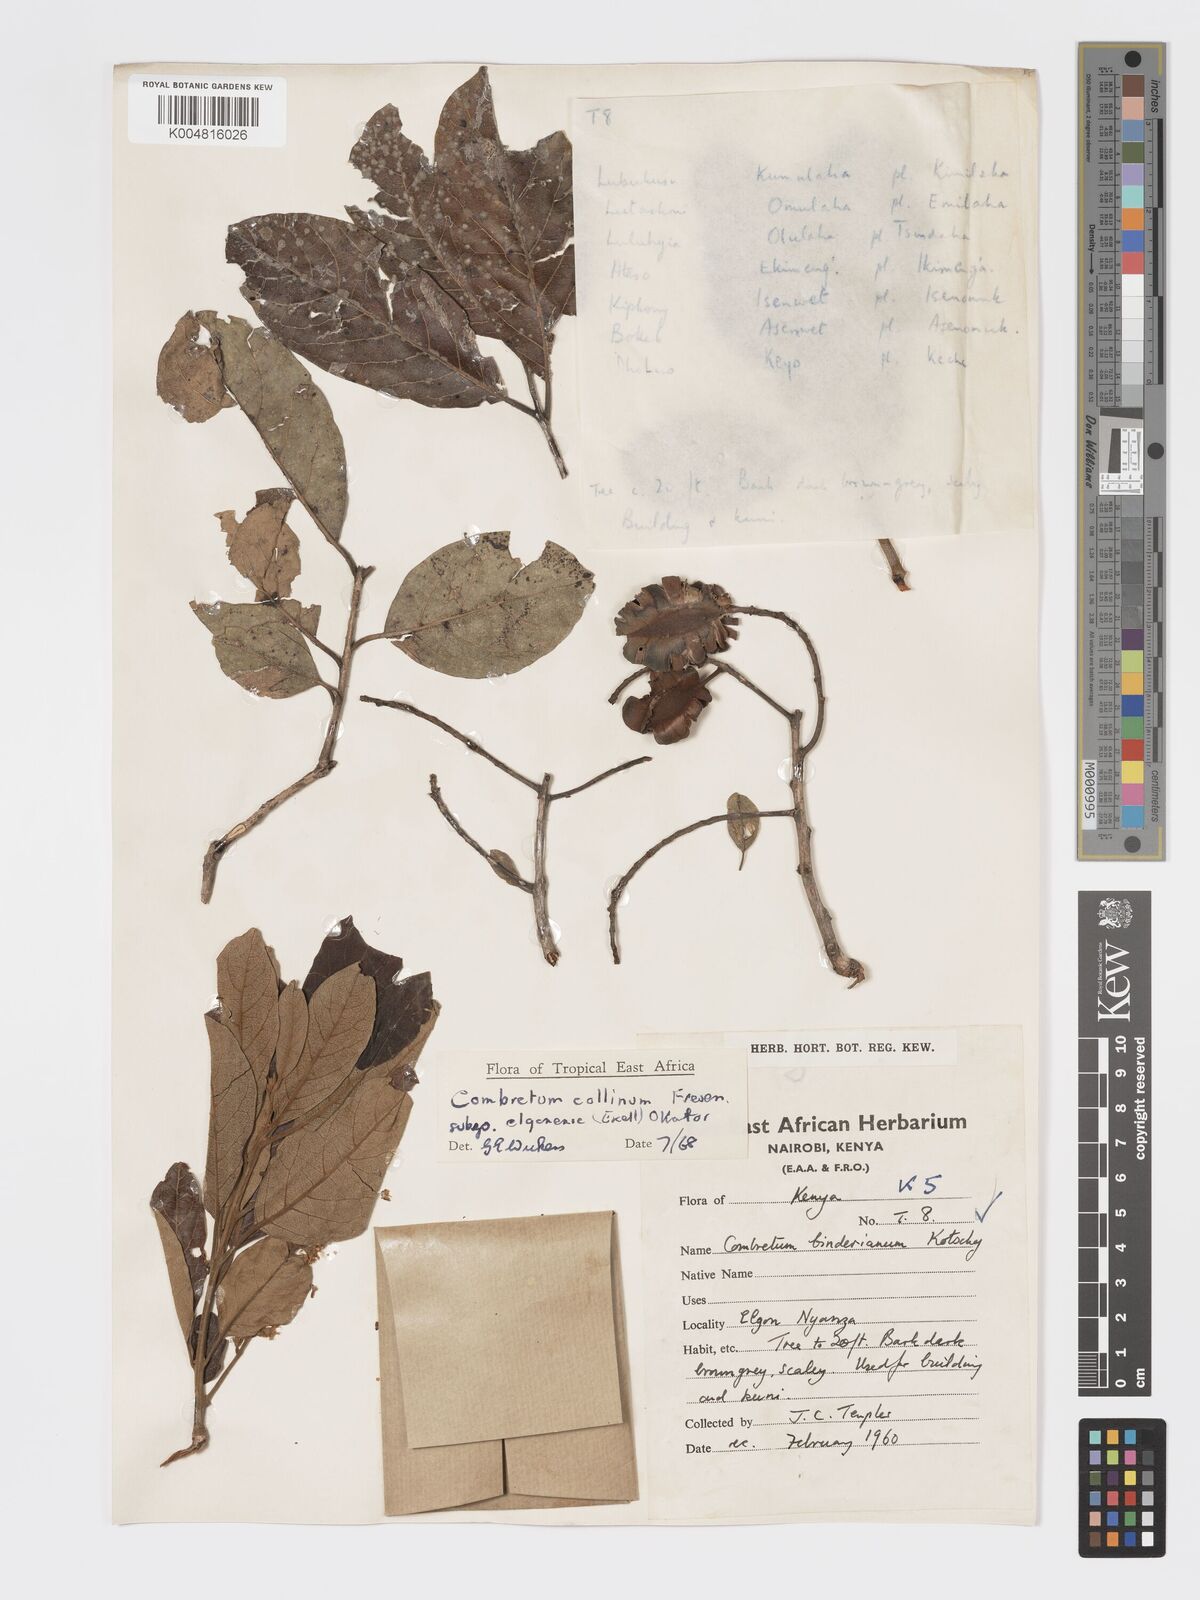 ROYAL BOTANIC GARDENS KEW
K004816026
T8
Kumulaha pl. Kimilaha
Omulaha pl. Emilaha
Olulaha pl. Tsindaha
Ateso Ekimeng' pl. Ikimenga.
Isenwet pl. Isenonuk
Bok Asenwet pl. Asenonuk.
Keyo pl. Keche
Tree c. 20 ft. Bark dark browngrey, scaley
Building & kuni.
Flora of Tropical East Africa
Combretum collinum Fresen.
subsp. elgonense (Exell) Okafor
Det. GEWickens Date 7/68
HERB. HORT. BOT. REG. KEW.
ast African Herbarium
NAIROBI, KENYA
(E.A.A. & F.R.O.)
Flora of Kenya K5
No. T. 8.
Name Combretum binderianum Kotschy
Native Name
Uses
Locality Elgon Nyanza
Habit, etc. Tree to 20ft. Bark dark
browngrey, scaley. Used for building
and kuni.
Collected by J. C. Templer
Date rec. February 1960
inches
centimeters
Density
Don Williams
M000995
Royal Botanic Gardens
Kew
copyright reserved
0 1 2 3 4 5 6 7 8 9 10
cm